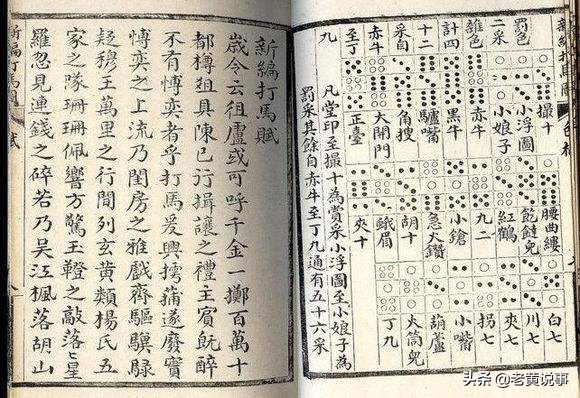 新編打馬圖
罰色
二采
雜色
計四
十二
采自
赤牛
至丁
九
撮十
小浮圖
小娘子
赤牛
黑牛
驢嘴
角搜
大開門
正臺
腰曲縷
紅鶴
九二
小鎗
急火鑽
胡十
蛾眉
夾十
白七
川七
夾七
拐七
小嘴
葫蘆
火筒兒
丁九
凡堂印至撮十為賞采小浮圖至小娘子為
罰采其餘自赤牛至丁九通有五十六采
新編打馬賦
歲令云徂盧或可呼千金一擲百萬十
都樽俎具陳已行揖讓之禮主賓既醉
不有博奕者乎打馬爰興摴蒱遂廢實
博奕之上流乃閨房之雅戲齊驅驥騄
疑穆王萬里之行間列玄黃類楊氏五
家之隊珊珊佩響方驚玉鞚之敲落〻星
羅忽見連錢之碎若乃吳江楓落胡山
新編打馬圖
賦
头条 @老黄说事